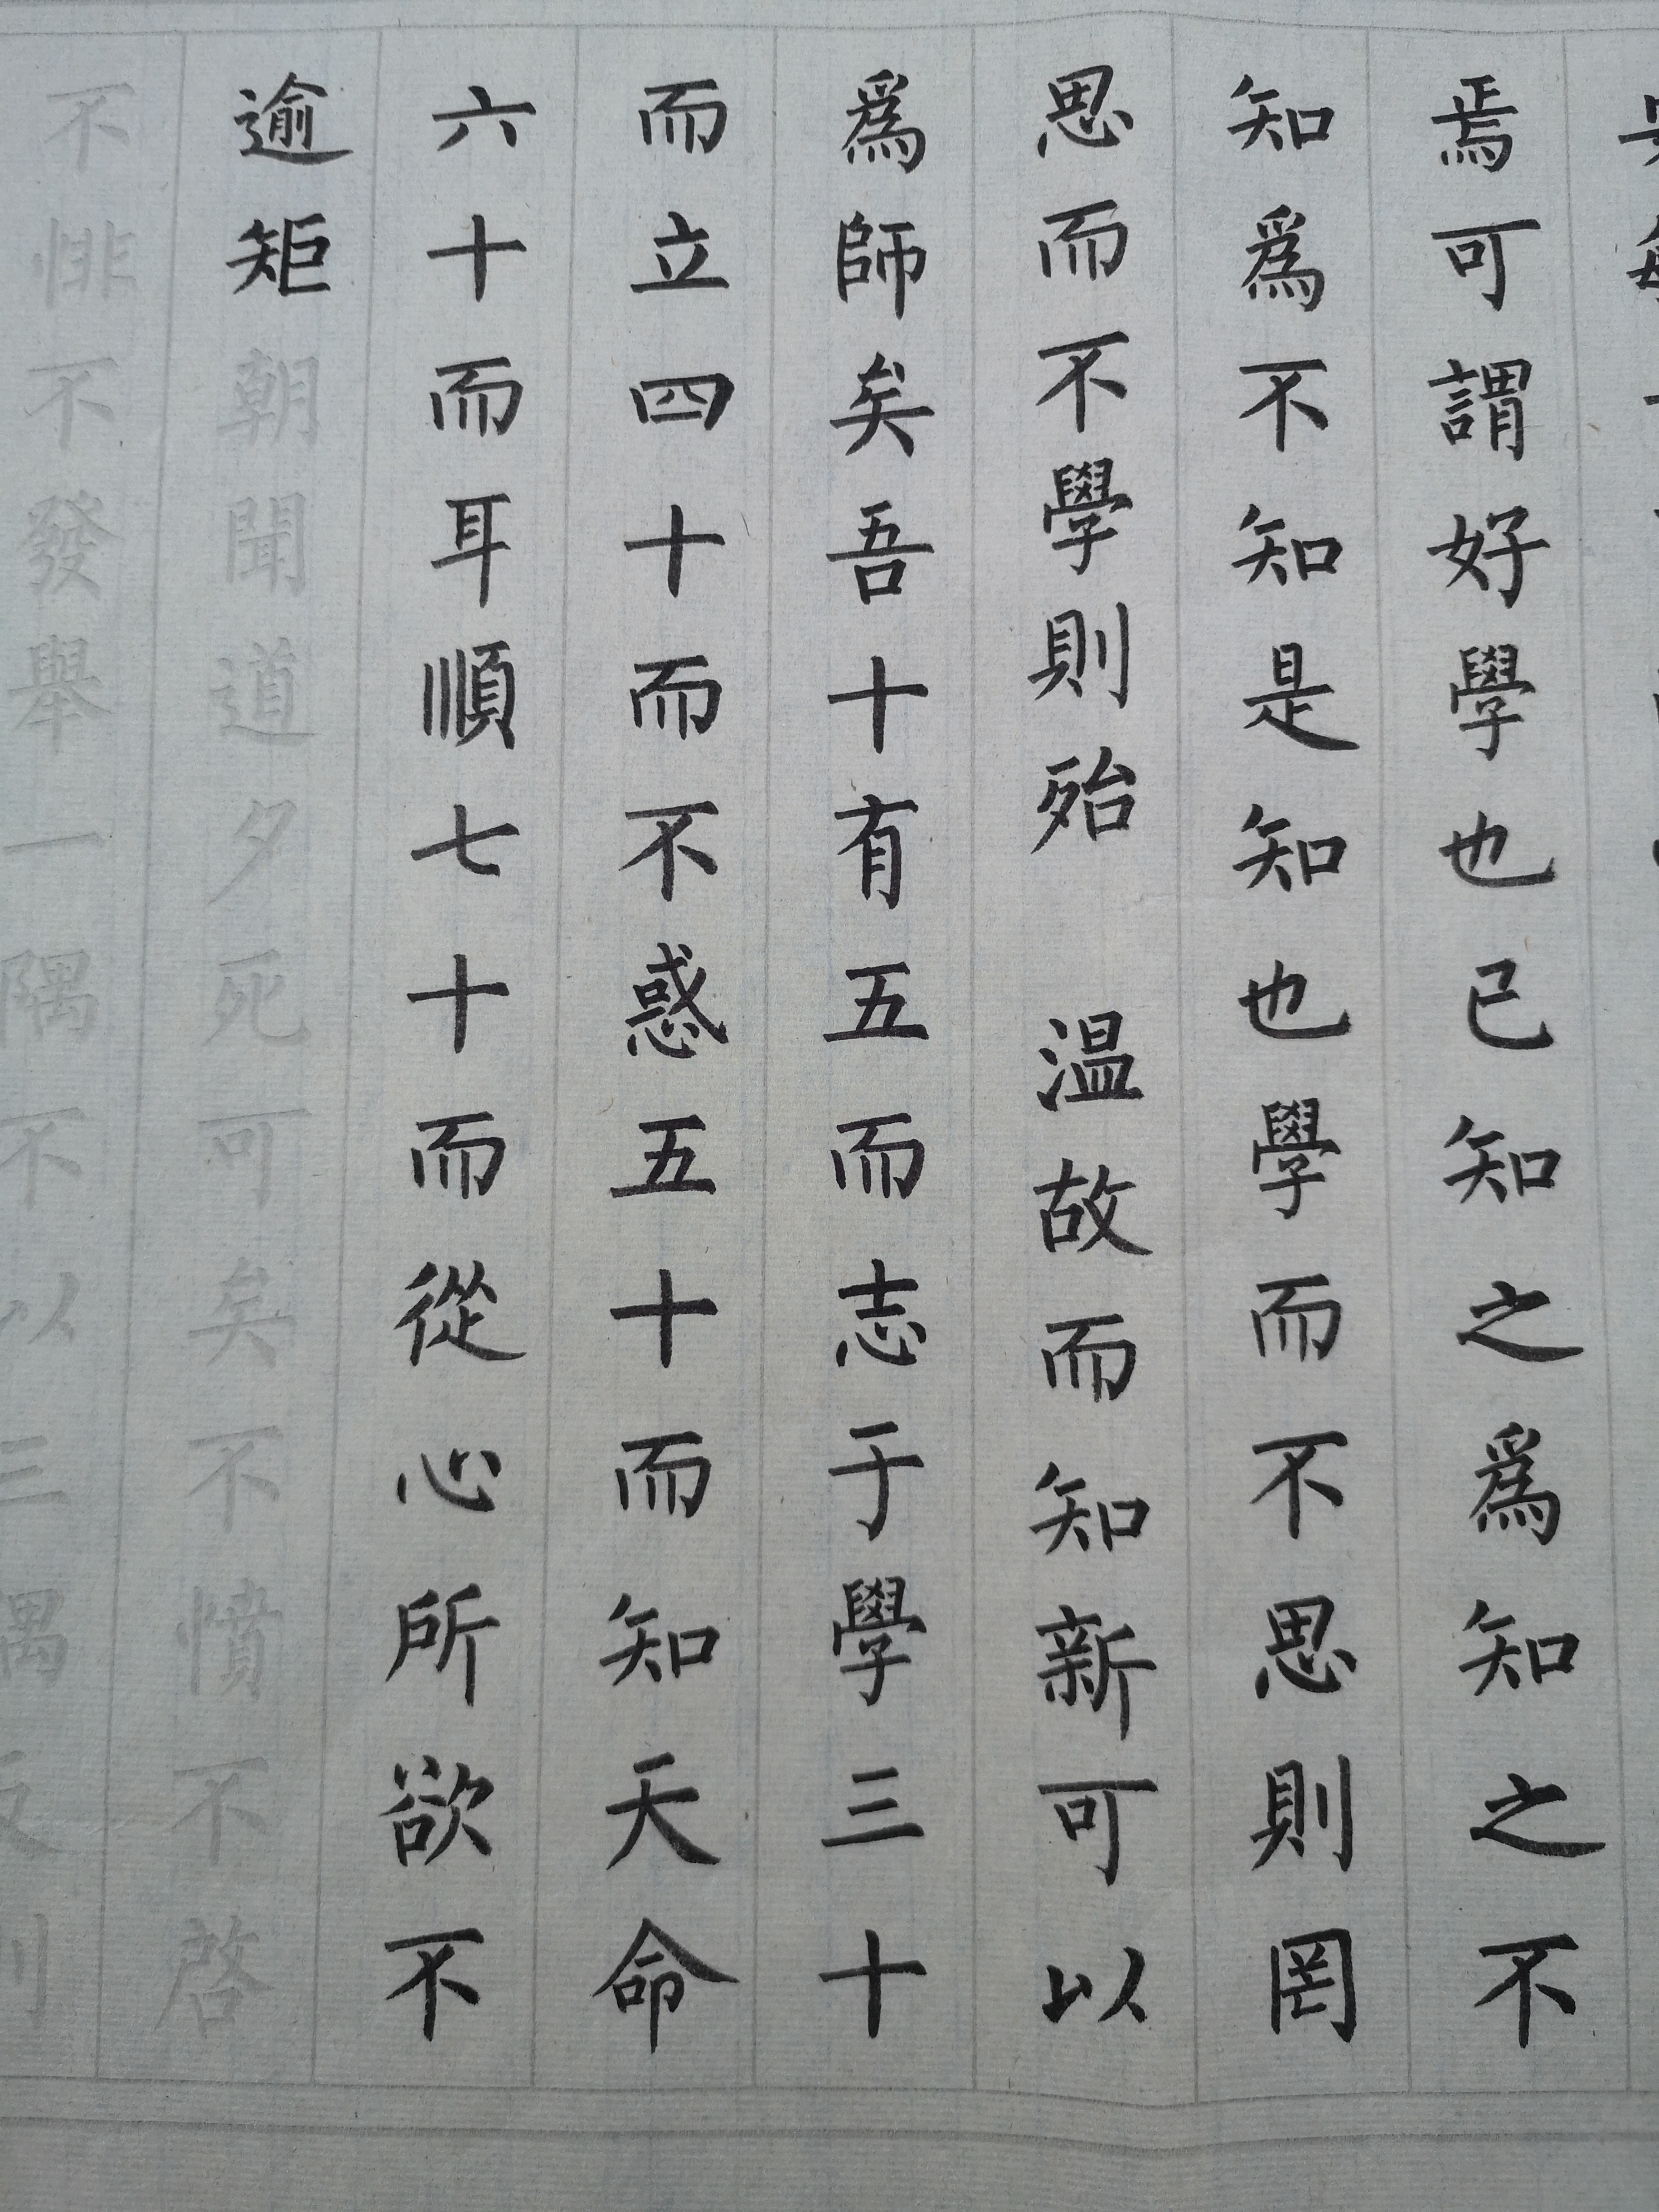 焉可謂好學也已知之爲知之不
知爲不知是知也學而不思則罔
思而不學則殆 温故而知新可以
爲師矣吾十有五而志于學三十
而立四十而不惑五十而知天命
六十而耳順七十而從心所欲不
逾矩朝聞道夕死可矣不憤不啓
不悱不發舉一隅不以三隅反則